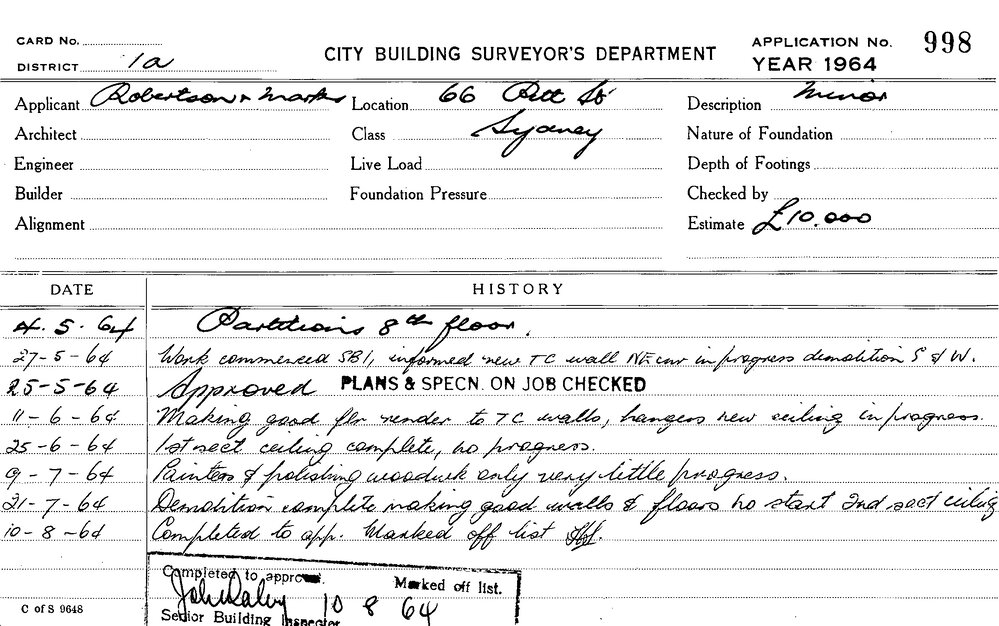 CARD No.
DISTRICT 1a
CITY BUILDING SURVEYOR'S DEPARTMENT
APPLICATION No. 998
YEAR 1964
Applicant Robertson & Marks
Location 66 Pitt St
Description Minor
Architect
Class Sydney
Nature of Foundation
Engineer
Live Load
Depth of Footings
Builder
Foundation Pressure
Checked by
Alignment
Estimate £10.000
DATE HISTORY
4.5.64 Partitions 8th floor.
27-5-64 Work commenced SB1, informed new TC wall NE cnr in progress demolition S & W.
25-5-64 Approved PLANS & SPECN. ON JOB CHECKED
11-6-64 Making good flr render to TC walls, hangers new ceiling in progress.
25-6-64 1st sect ceiling complete, no progress.
9-7-64 Painters & polishing woodwk only very little progress.
21-7-64 Demolition complete making good walls & floors no start 2nd sect ceiling
10-8-64 Completed to app. Marked off list
Completed to approval Marked off list.
10 8 64
Senior Building Inspector
C of S 9648